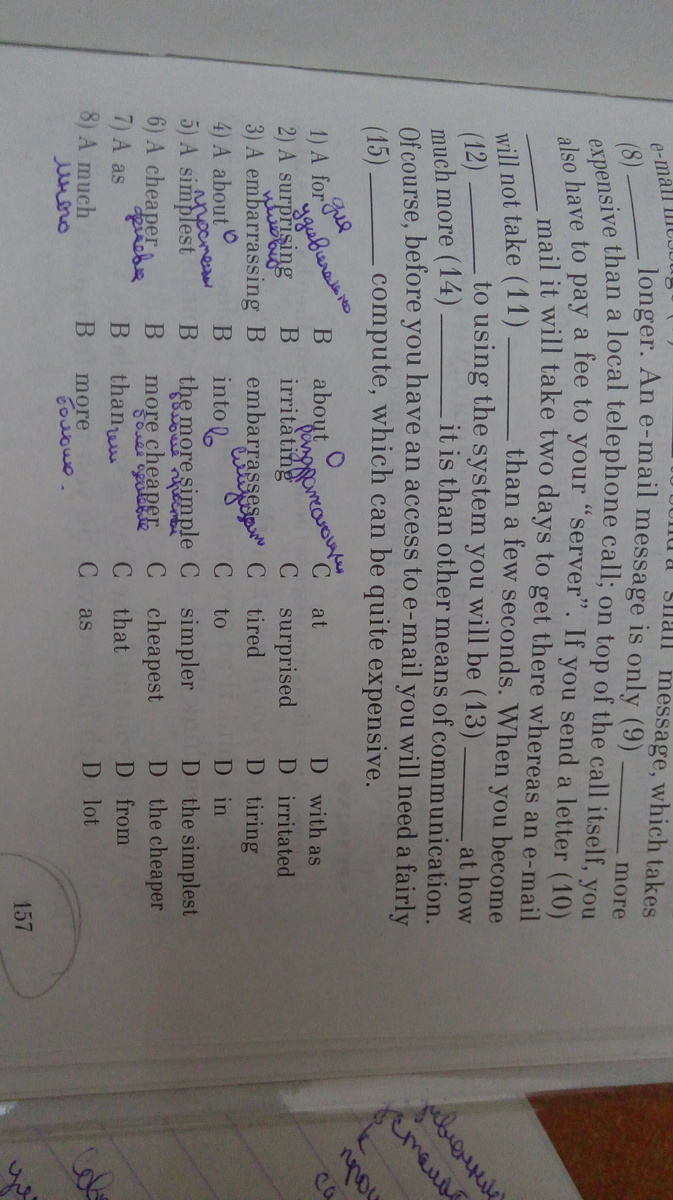 e-mail message to send a small message, which takes
(8) _____ longer. An e-mail message is only (9) _____ more
expensive than a local telephone call; on top of the call itself, you
also have to pay a fee to your “server”. If you send a letter (10)
_____ mail it will take two days to get there whereas an e-mail
will not take (11) _____ than a few seconds. When you become
(12) _____ to using the system you will be (13) _____ at how
much more (14) _____ it is than other means of communication.
Of course, before you have an access to e-mail you will need a fairly
(15) _____ compute, which can be quite expensive.
для о
1) A for B about C at D with as
удивительно раздражающий
2) A surprising B irritating C surprised D irritated
3) A embarrassing B embarrasses C tired D tiring
о в
4) A about B into C to D in
простейший
5) A simplest B the more simple C simpler D the simplest
6) A cheaper B more cheaper C cheapest D the cheaper
дешевле более дешевле
7) A as B than C that D from
чем
8) A much B more C as D lot
много больше.
157